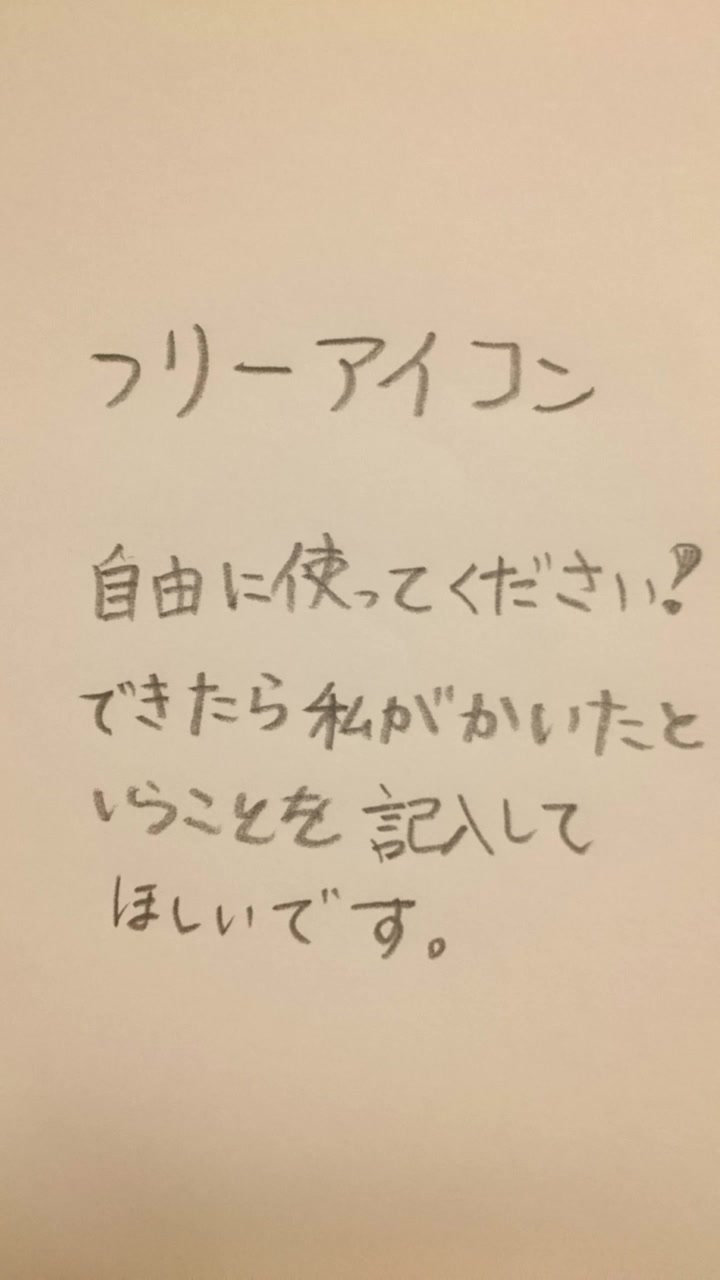 フリーアイコン
自由に使ってください!
できたら私がかいたと
いうことを記入して
ほしいです。